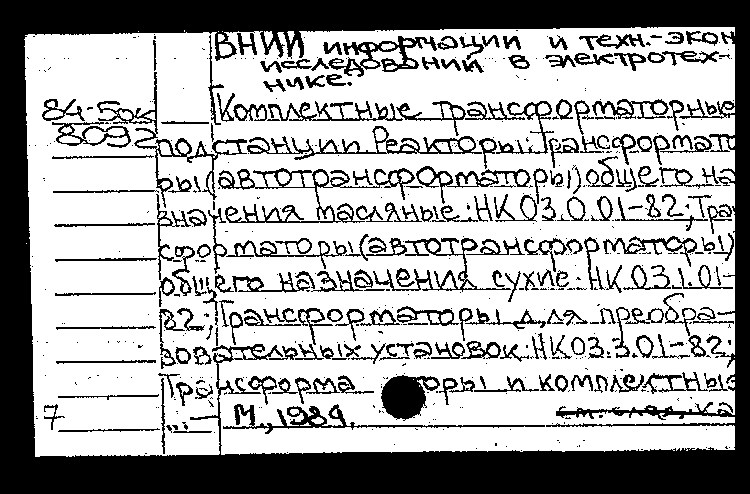 ВНИИ информации и техн.-экон
исследований в электротех-
нике.
84-5ок
8092
Комплектные трансформаторные
подстанции. Реакторы: Трансформато
ры (автотрансформаторы) общего на
значения масляные: НК 03.0.01-82; Тран
сформаторы (автотрансформаторы)
общего назначения сухие: НК 03.1.01-
82; Трансформаторы для преобра-
зовательных установок: НК 03.3.01-82;
Трансформа торы и комплектные
7 „.— М., 1984. см. след. ка